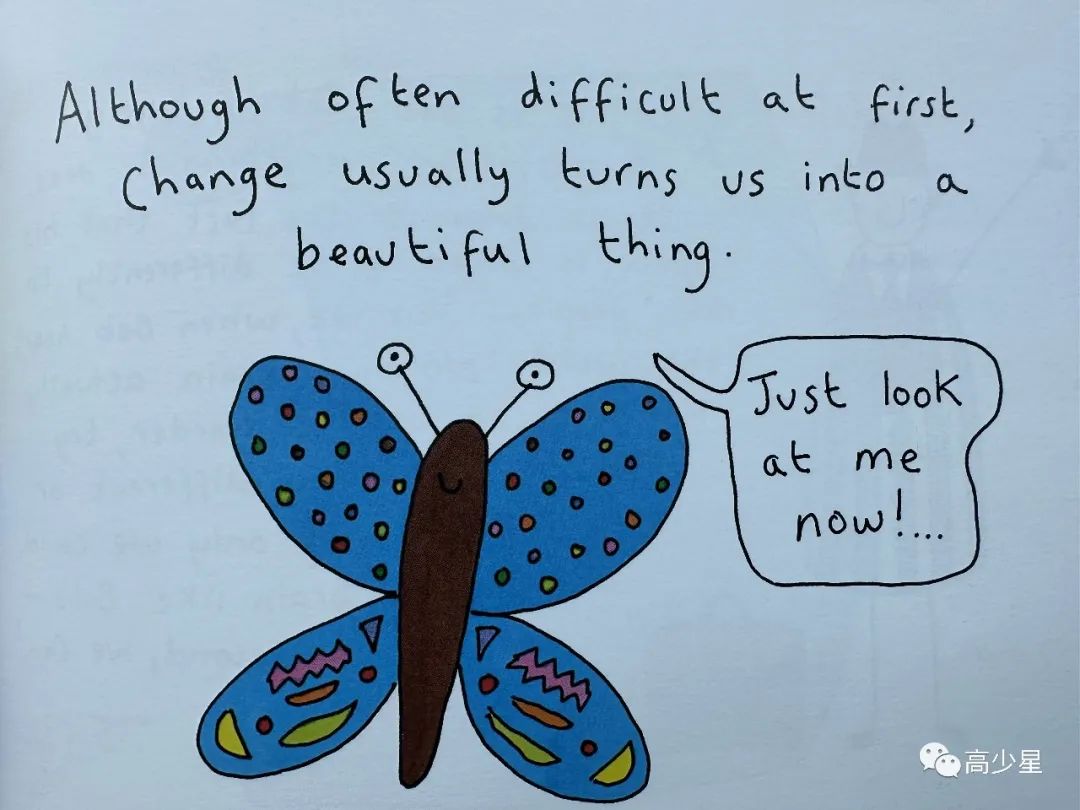 Although often difficult at first,
Change usually turns us into a
beautiful thing.
Just look
at me
now!...
高少星